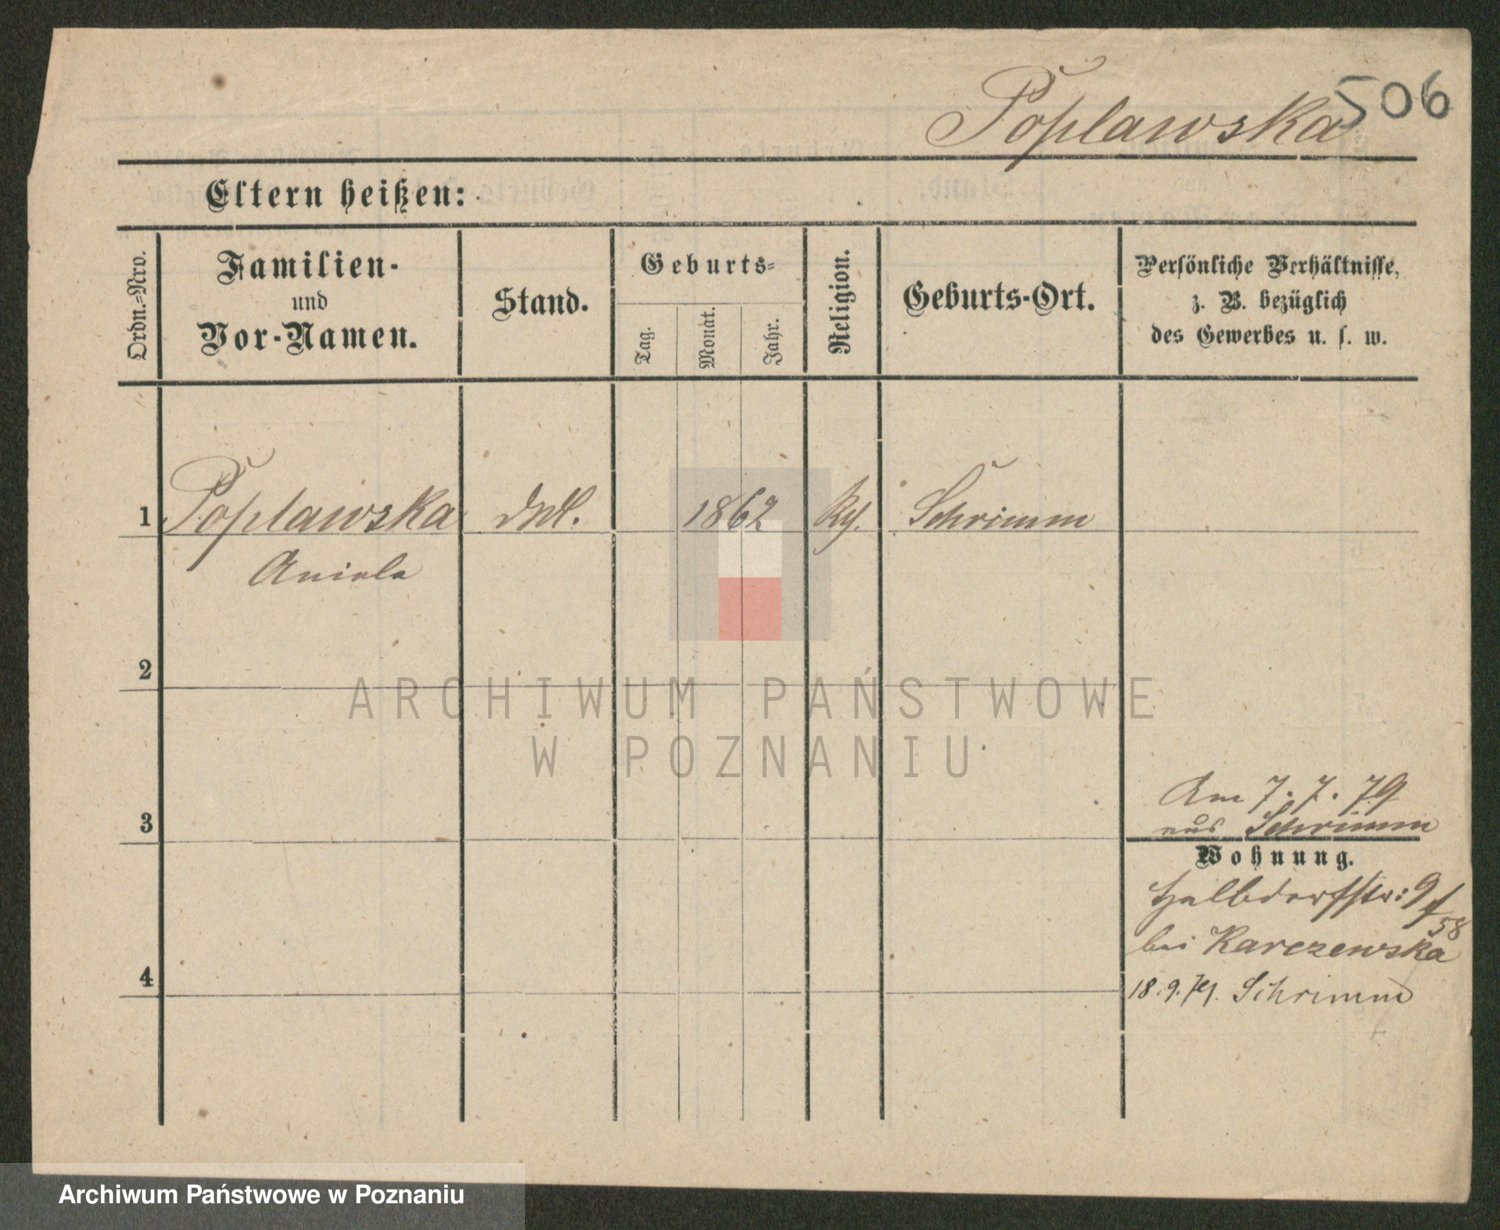 Poplawska 506
Eltern heißen:
Ordn.-Nro.
Familien-
und
Vor-Namen.
Stand.
Geburts-
Tag.
Monat.
Jahr.
Religion.
Geburts-Ort.
Persönliche Verhältnisse,
z. B. bezüglich
des Gewerbes u. s. w.
1 Poplawska 1862 Schrimm
Aniela
2
ARCHIWUM PAŃSTWOWE
W POZNANIU
Am 7. 7. 79
3 aus Schrimm
Wohnung.
Halbdorfstr: 9/58
bei Karczewska
4 18.9.79. Schrimm
Archiwum Państwowe w Poznaniu